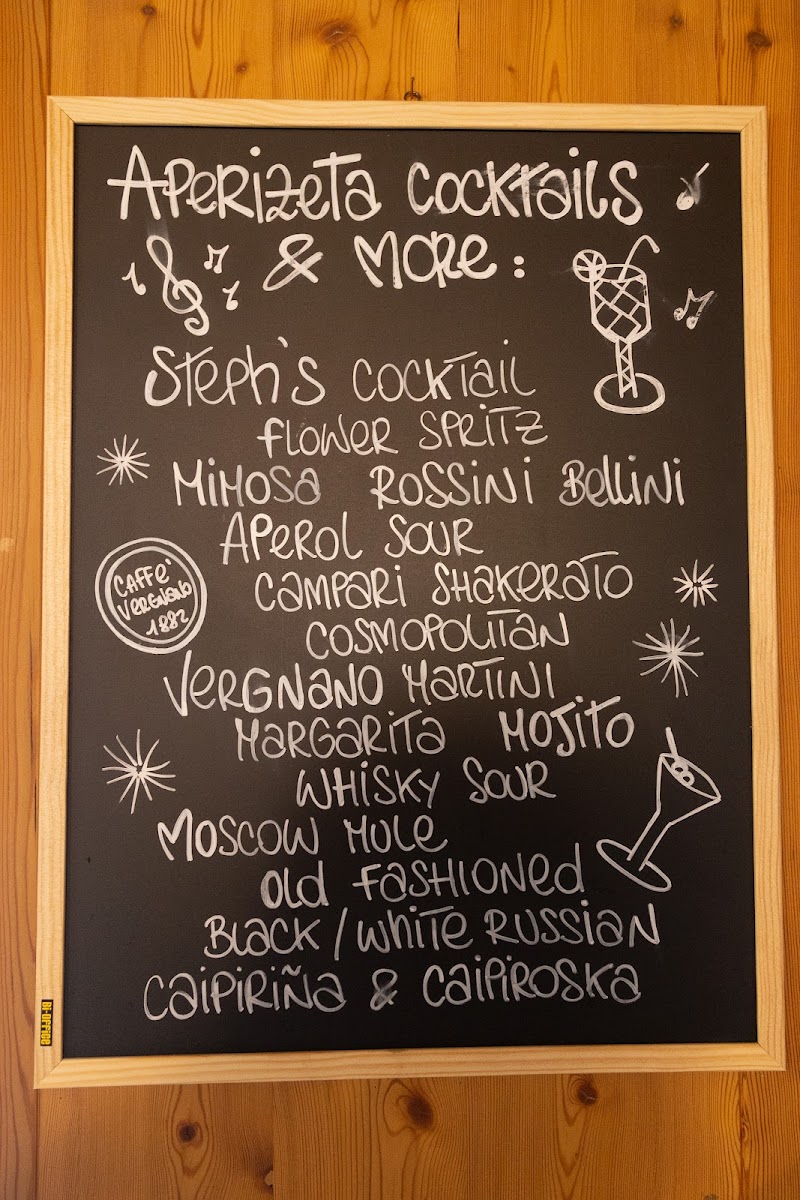 Aperizeta Cocktails
& More:
Steph's Cocktail
Flower Spritz
Mimosa Rossini Bellini
Aperol Sour
Campari Shakerato
Caffe' Vergnano 1882
Cosmopolitan
Vergnano Martini
Margarita Mojito
Whisky Sour
Moscow Mule
Old Fashioned
Black/White Russian
Caipiriña & Caipiroska
BI-OFFICE